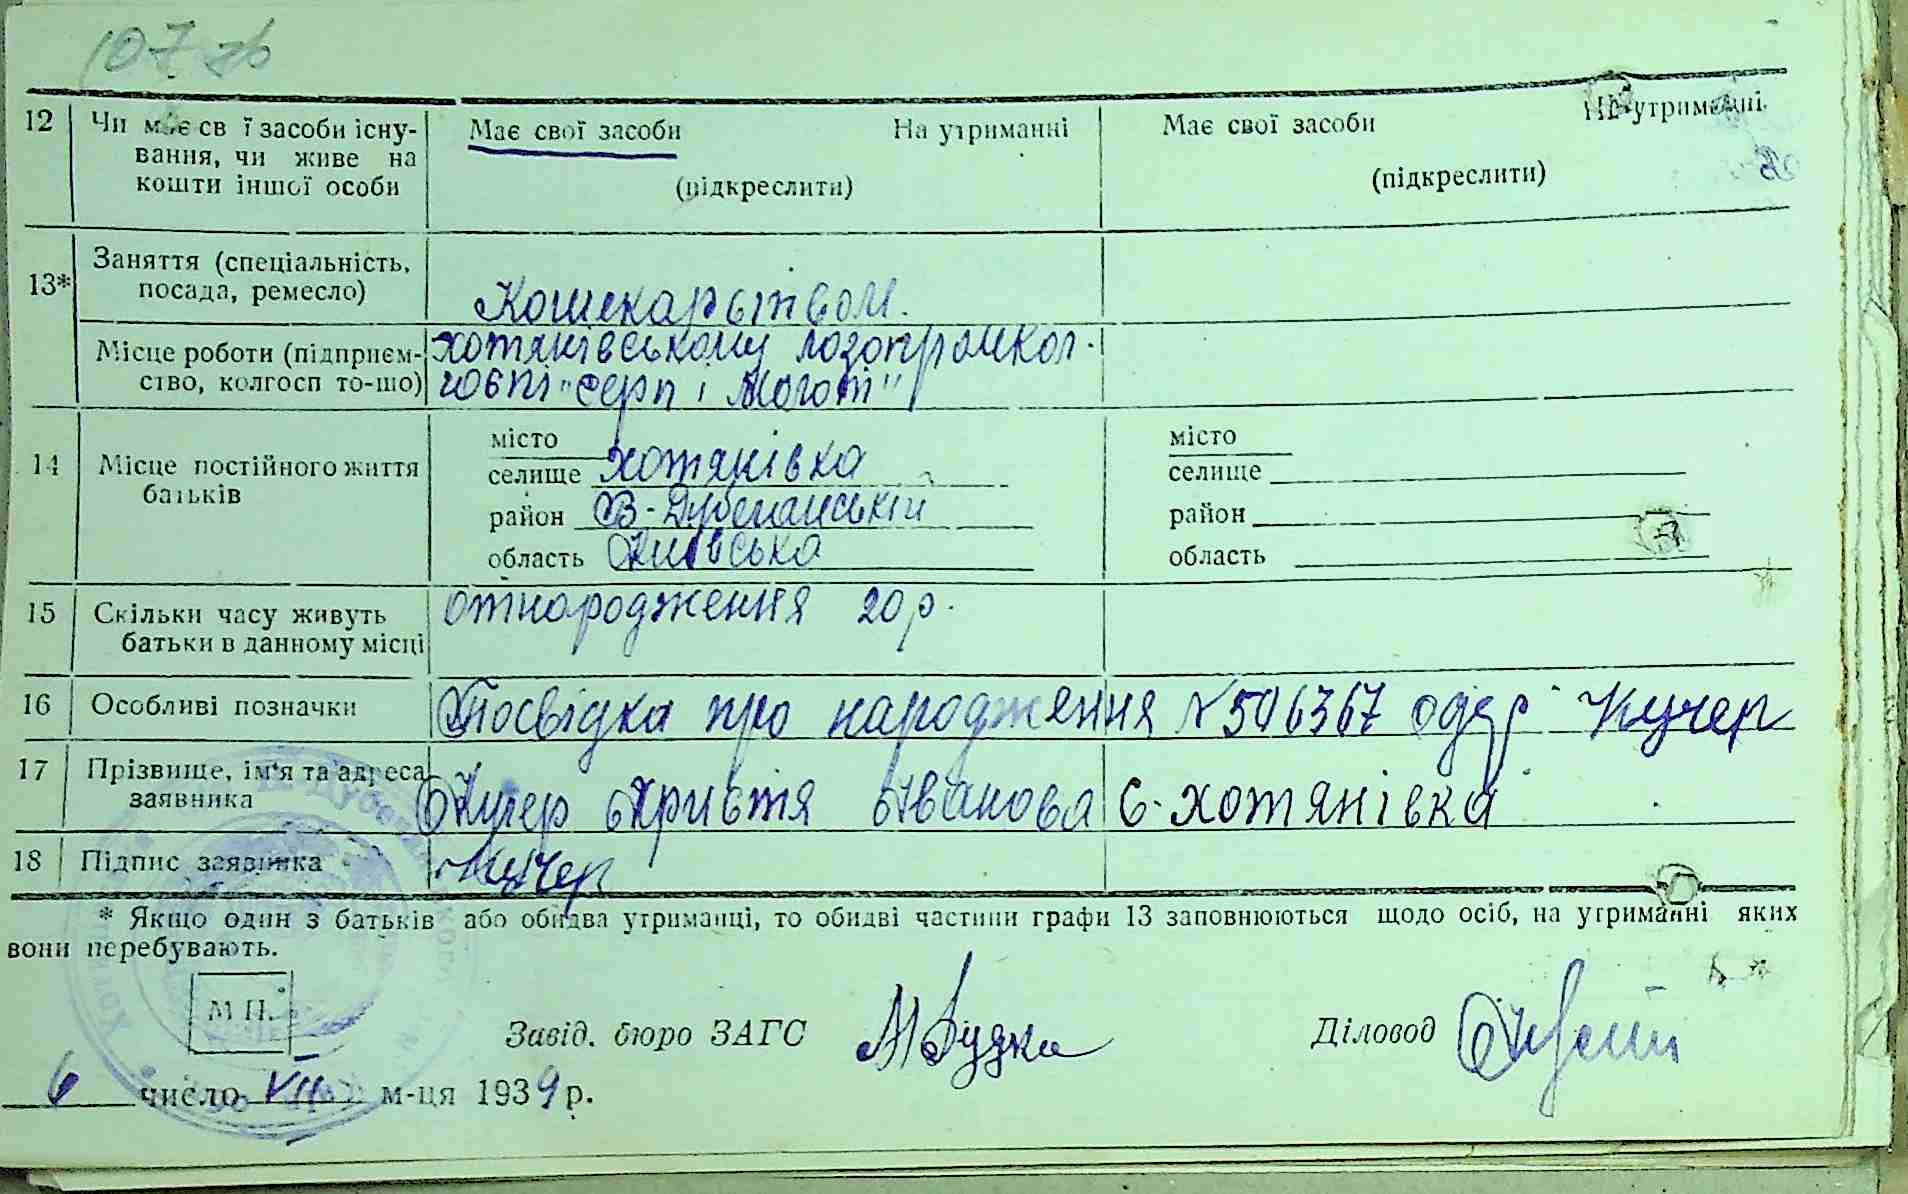 107 зв
12 Чи має св ї засоби існу- Має свої засоби На утриманні Має свої засоби На утриманні
вання, чи живе на
кошти іншої особи (підкреслити) (підкреслити)
Заняття (спеціальність,
13* посада, ремесло) Кошекарством.
Місце роботи (підприєм- хотянівському лозопромкол-
ство, колгосп то-що) госпі "серп і молот"
місто місто
14 Місце постійного життя селище хотянівка селище
батьків
район В-Дубечанський район
область Київська область
15 Скільки часу живуть отнародження 20 р.
батьки в данному місці
16 Особливі позначки Посвідка про народження № 506367 одер Кучер
17 Прізвище, ім'я та адреса
заявника Кучер Христя Іванова с. хотянівка
18 Підпис заявника Кучер
* Якщо один з батьків або обидва утриманці, то обидві частини графи 13 заповнюються щодо осіб, на утриманні яких
вони перебувають.
М П.
Завід. бюро ЗАГС М Будка Діловод
6 число VII м-ця 1939 р.